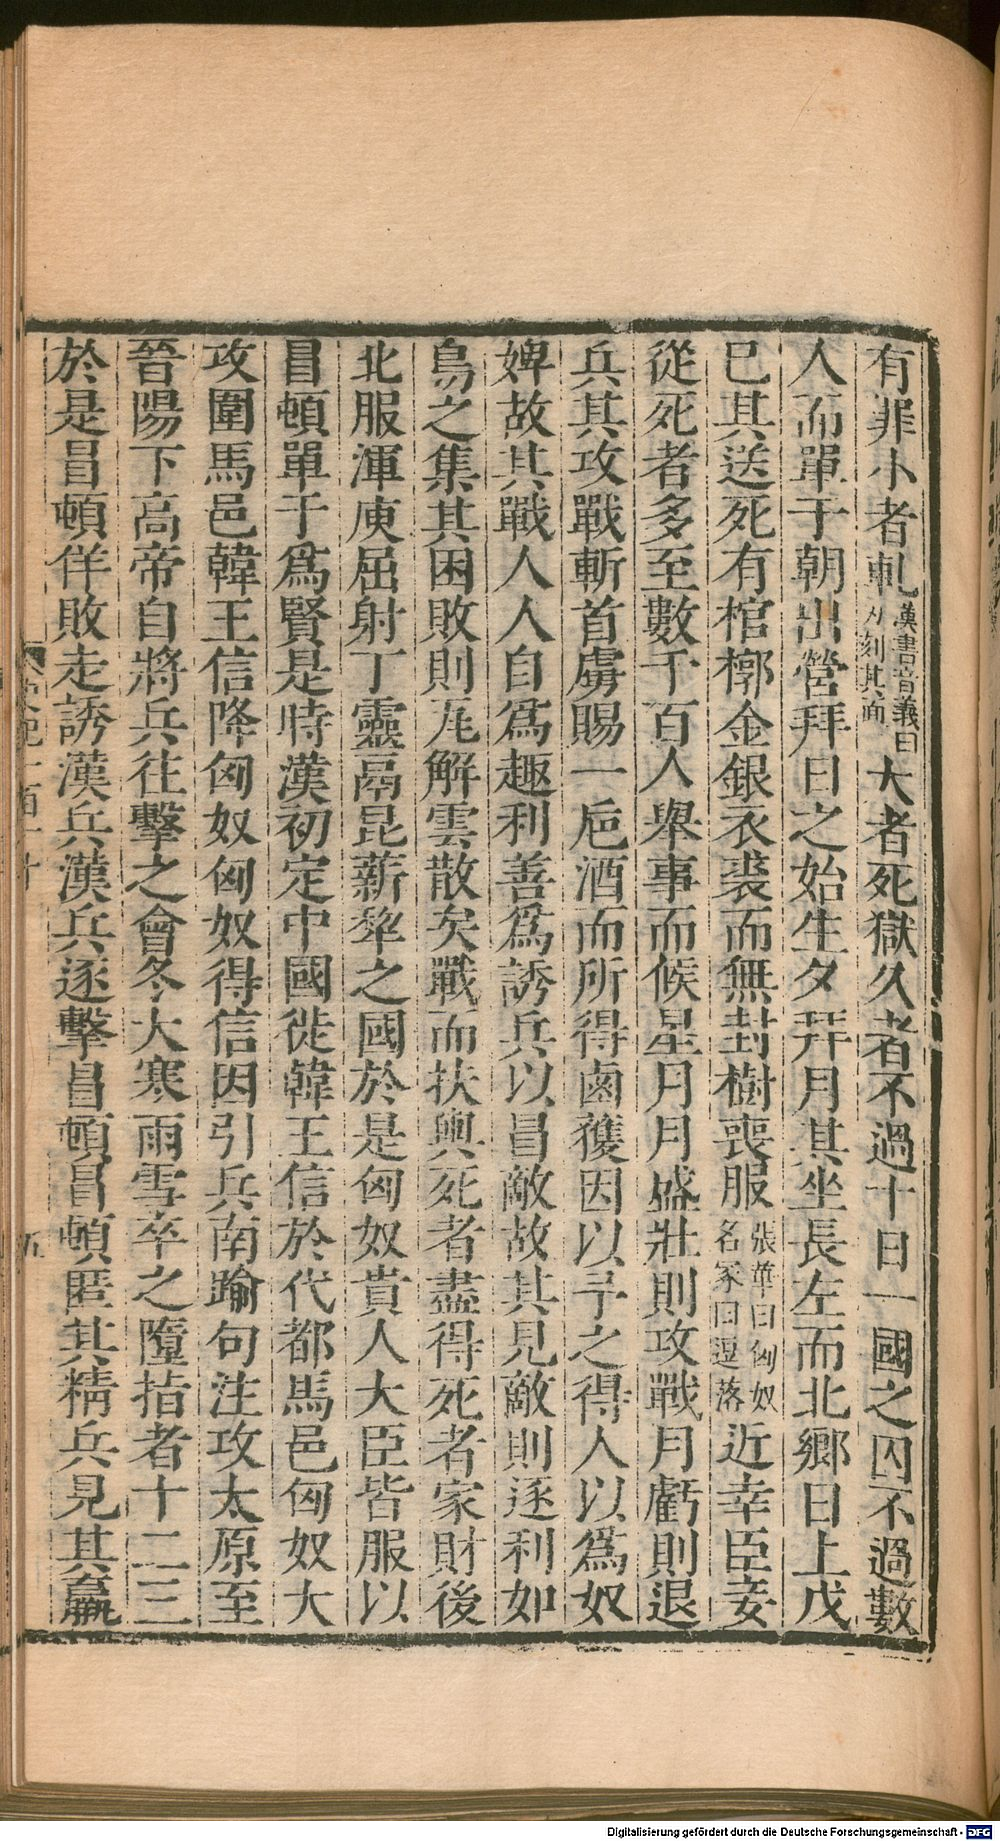 有罪小者軋漢書音義曰刃刻其面大者死獄久者不過十日一國之囚不過數
人而單于朝出營拜日之始生夕拜月其坐長左而北鄉日上戊
巳其送死有棺槨金銀衣裘而無封樹喪服張華曰匈奴名冢曰逗落近幸臣妾
從死者多至數千百人舉事而候星月月盛壯則攻戰月虧則退
兵其攻戰斬首虜賜一巵酒而所得鹵獲因以予之得人以為奴
婢故其戰人人自為趣利善為誘兵以冒敵故其見敵則逐利如
鳥之集其困敗則瓦解雲散矣戰而扶輿死者盡得死者家財後
北服渾庾屈射丁靈鬲昆薪犂之國於是匈奴貴人大臣皆服以
冒頓單于為賢是時漢初定中國徙韓王信於代都馬邑匈奴大
攻圍馬邑韓王信降匈奴匈奴得信因引兵南踰句注攻太原至
晉陽下高帝自將兵往擊之會冬大寒雨雪卒之墮指者十二三
於是冒頓佯敗走誘漢兵漢兵逐擊冒頓冒頓匿其精兵見其羸
史記一百一十
五
Digitalisierung gefördert durch die Deutsche Forschungsgemeinschaft - DFG